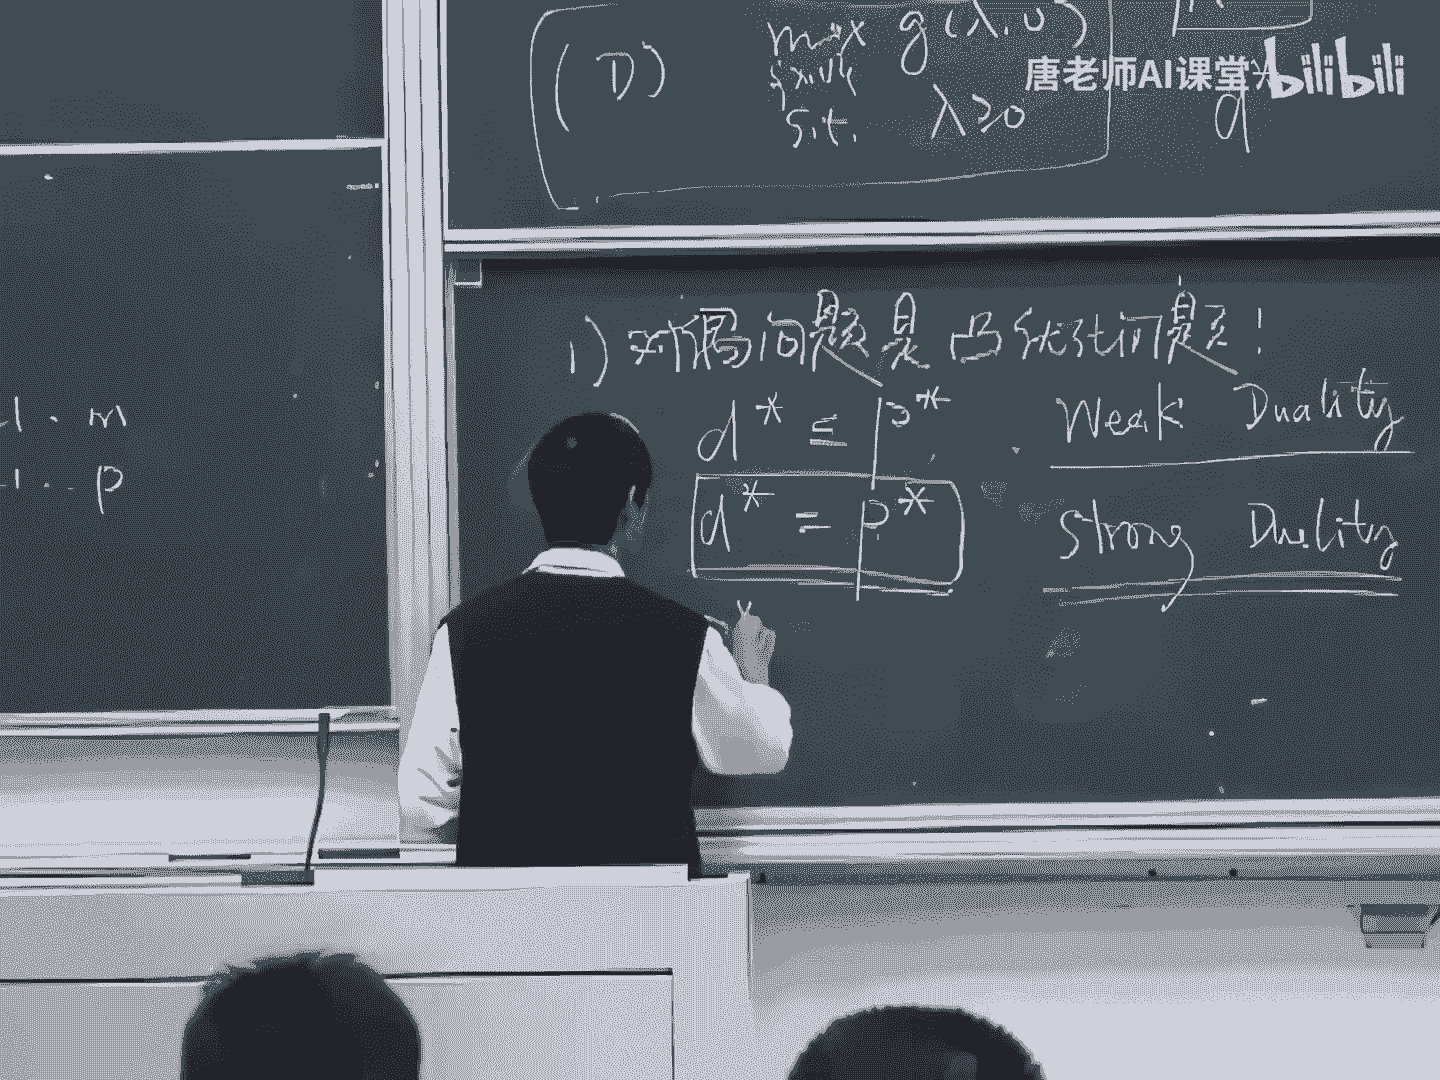 (D) max g(λ,υ)
s.t. λ≥0
d*
唐老师AI课堂 bilibili
1. m
1. .. p
1) 对偶问题是凸优化问题!
d* ≤ p* Weak Duality
d* = p* Strong Duality